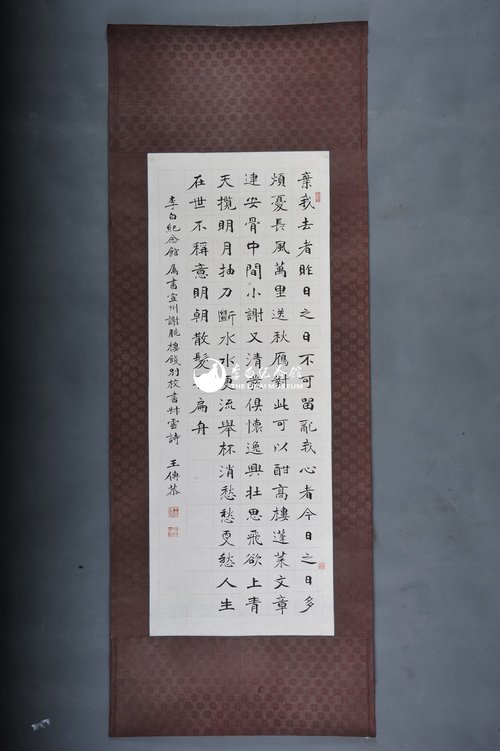 棄我去者昨日之日不可留亂我心者今日之日多
煩憂長風萬里送秋鴈對此可以酣高樓蓬萊文章
建安骨中間小謝又清發俱懷逸興壯思飛欲上青
天攬明月抽刀斷水水更流舉杯消愁愁更愁人生
在世不稱意明朝散髮扁舟
李白紀念館属書宣州謝朓樓餞別校書叔雲詩 王傳恭
李白纪念馆
THE LIBAI MUSEUM